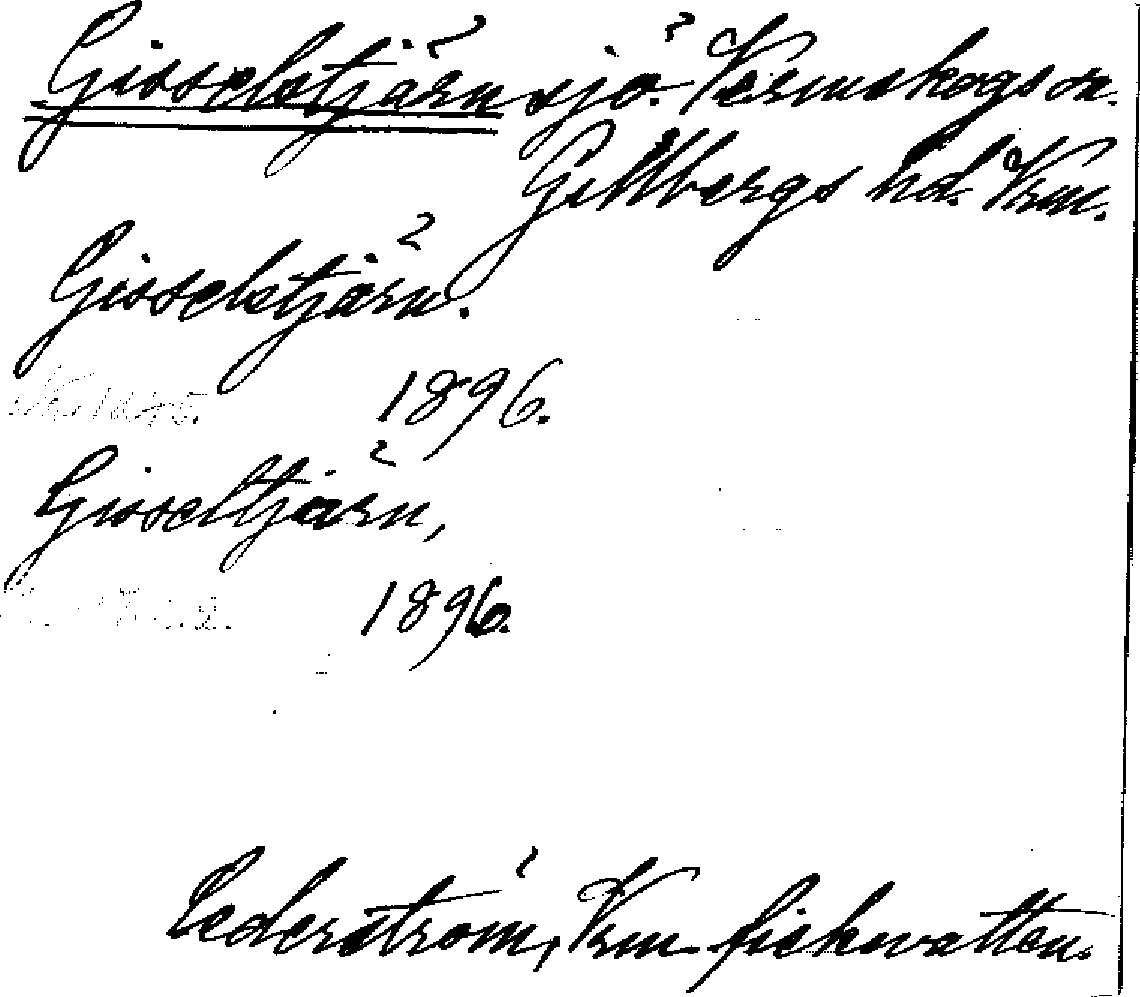 Gisselstjärn sjö. Värmskogs sn.
Gillbergs hd. Vrm.
Gisselstjärn.
1896.
Gisseltjärn,
1896.
Cederström, Vrm fiskvatten.